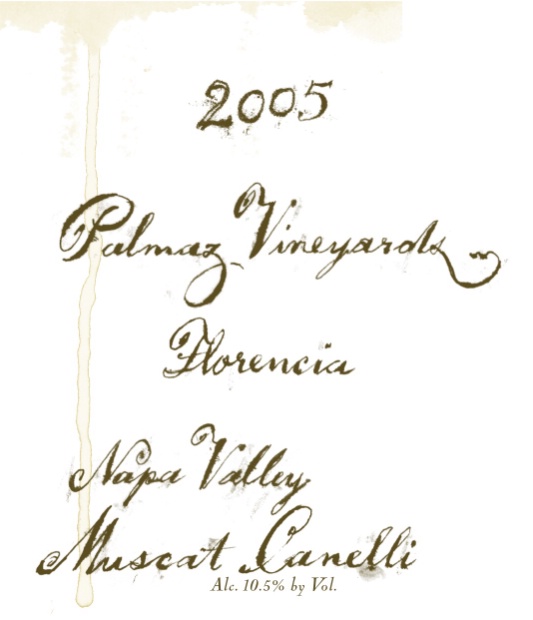 2005
Palmaz Vineyards
Florencia
Napa Valley
Muscat Canelli
Alc. 10.5% by Vol.